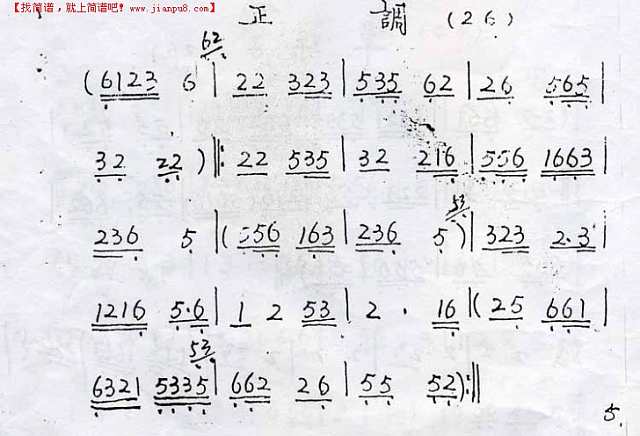 【找简谱，就上简谱吧！www.jianpu8.com】
正 調 (26)
62
(6123 6 | 22 323 | 535 62 | 26 565 |
32 22 ) ||: 22 535 | 32 216 | 556 1663 |
53
236 5 | (556 163 | 236 5 ) | 323 2·3 |
1216 5·6 | 1 2 53 | 2 · 16 | (25 661 |
53
6321 5335 | 662 26 | 55 52 ) :||
5.